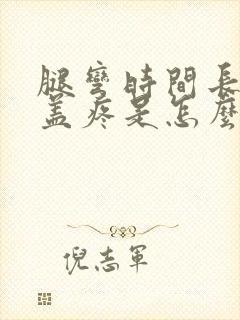 腿彎時間長
蓋疼是怎麼
倪志軍